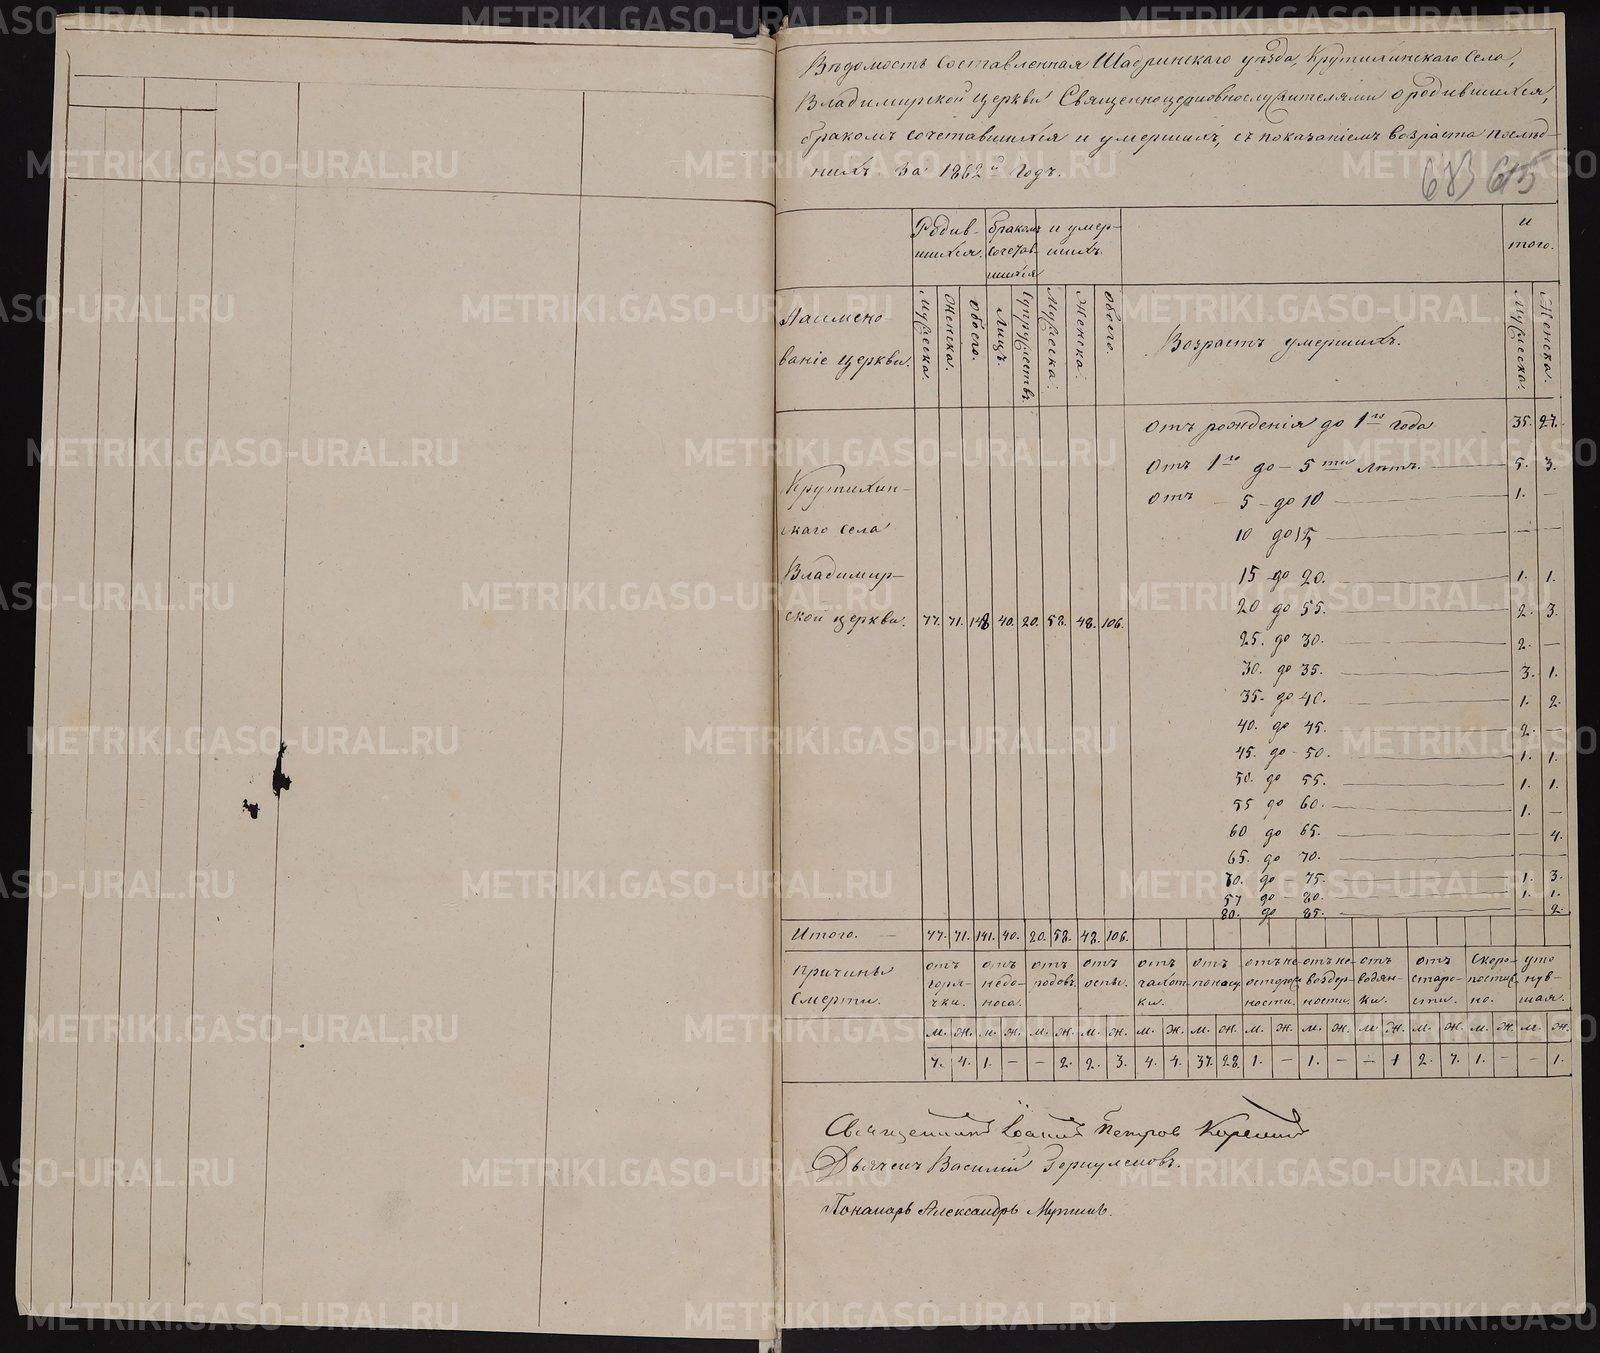 Вѣдомость Составленная Шадринскаго уѣзда, Крутихинскаго Села,
Владимирской церкви Священноцерковнослужителями о родившихся,
бракомъ сочетавшихся и умершихъ, съ показаніемъ возраста послѣд-
нихъ за 1862й годъ.
683 615
Родив-шихся. бракомъ сочетав-шихся и умер-шихъ. и того.
Наимено-ваніе церкви. Мужеска. Женска. обоего. Лицъ. Супружествъ. Мужеска. Женска. обоего. Возрастъ умершихъ. Мужеска. Женска.
отъ рожденія до 1го года 35. 27.
отъ 1го до – 5ти лѣтъ. 5. 3.
отъ 5 – до 10 1. –
10 до 15 – –
15 до 20. 1. 1.
20 до 55. 2. 3.
25. до 30. 2. –
30. до 35. 3. 1.
35. до 40. 1. 2.
40. до 45. 2. –
45. до – 50. 1. 1.
50. до 55. 1. 1.
55 до 60. 1. –
60 до 65. – 4.
65. до 70. – –
70. до – 75. 1. 3.
57 до – 80. 1. 1.
80. до 85. – 2.
Крутихин-
скаго села
Владимир-
ской церкви. 77. 71. 148 40. 20. 58. 48. 106.
Итого. 77. 71. 141. 40. 20. 58. 48. 106.
Причины отъ отъ отъ отъ отъ отъ отъ не отъ не отъ отъ Скоро- уто
Смерти. горя- недо- родовъ. оспы. чахот- поносу. осторож воздер- водян- старо- постиж нув-
чки. носа. ки. ности. ности. ки. сти. но. шая.
м. ж. м. ж. м. ж. м. ж. м. ж. м. ж. м. ж. м. ж. м. ж. м. ж. м. ж. м. ж.
7. 4. 1. – – 2. 2. 3. 4. 4. 37. 28. 1. – 1. – – 1 2. 7. 1. – – 1.
Священникъ Іоаннъ Петров
Дьячекъ Василій
Пономарь Александръ
METRIKI.GASO-URAL.RU